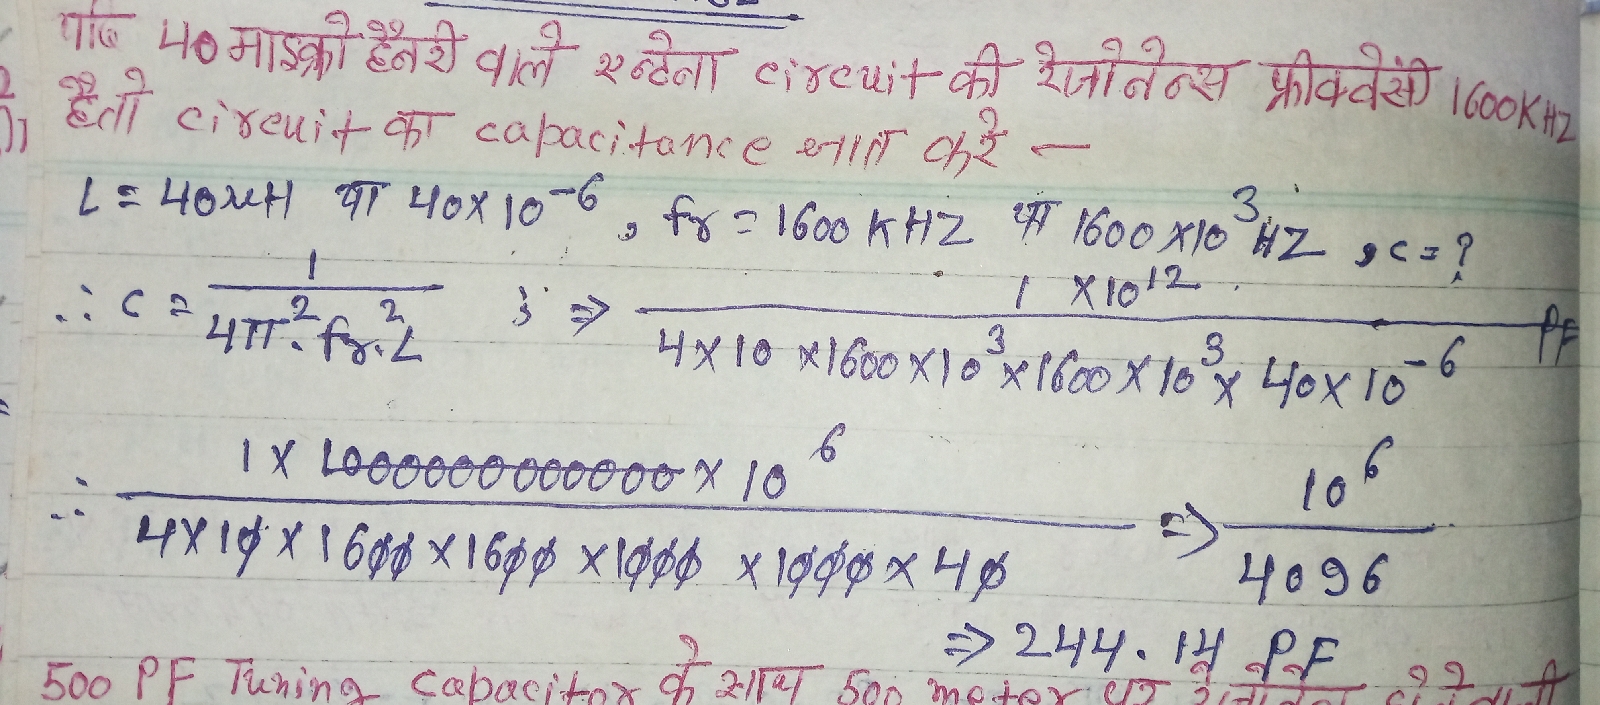 यदि 40 माइक्रो हैनरी वाले एन्टेना circuit की रेजोनेन्स फ्रीक्वेंसी 1600KHZ
है तो circuit का capacitance ज्ञात करे –
L = 40uH या 40×10⁻⁶, fr = 1600 KHZ या 1600×10³ HZ, c = ?
∴ c = 1 / 4π².fr².L ; ⇒ 1 ×10¹² / 4×10×1600×10³×1600×10³×40×10⁻⁶ PF
∴ 1× 1000000000000×10⁶ / 4×10×1600×1600×1000×1000×40 ⇒ 10⁶ / 4096
⇒ 244.14 PF
500 PF Tuning capacitor के साथ 500 meter पर